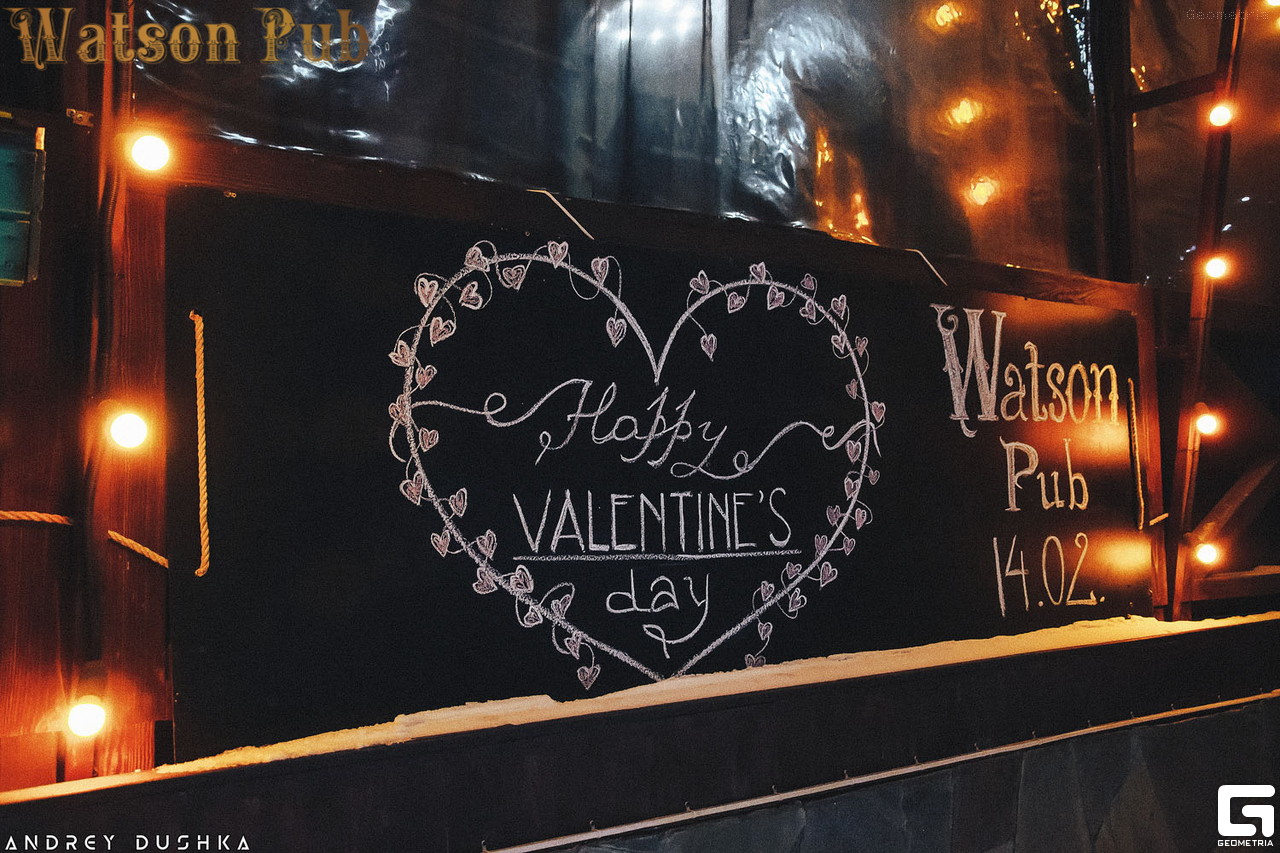 Watson Pub
Geometria
Happy
VALENTINE'S
day
Watson
Pub
14.02.
ANDREY DUSHKA
GEOMETRIA